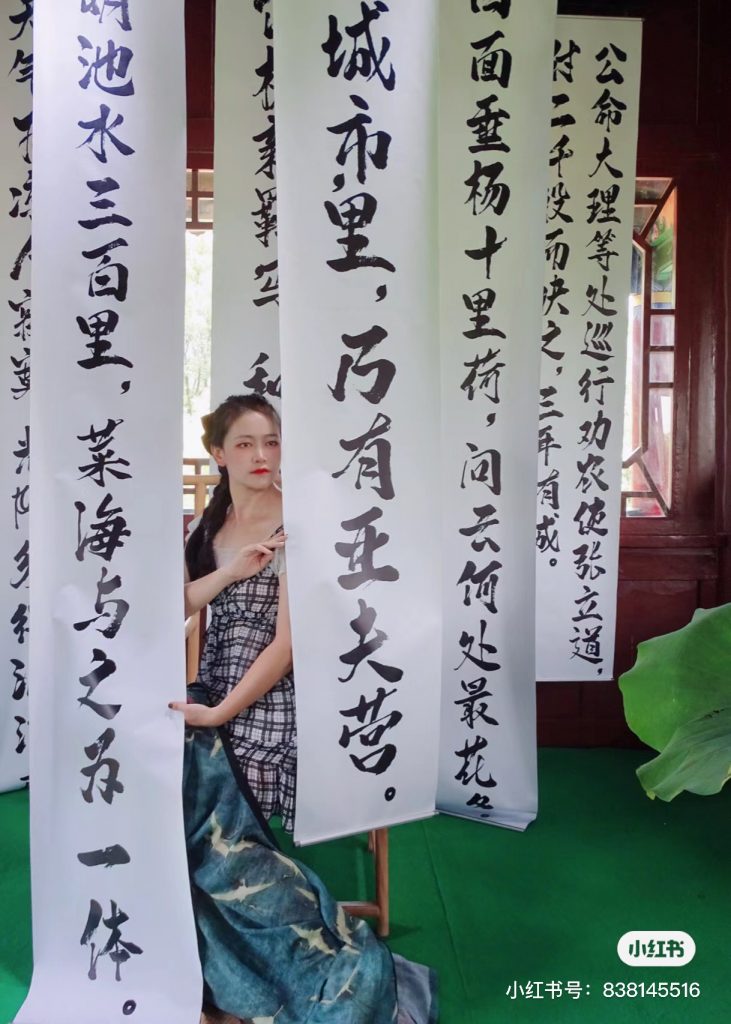 公命大理等处巡行劝农使张立道，
付二千役而决之，三年有成。
面垂杨十里荷，问云何处最花多。
城市里，乃有亚夫营。
明池水三百里，菜海与之为一体。
小红书
小红书号：838145516